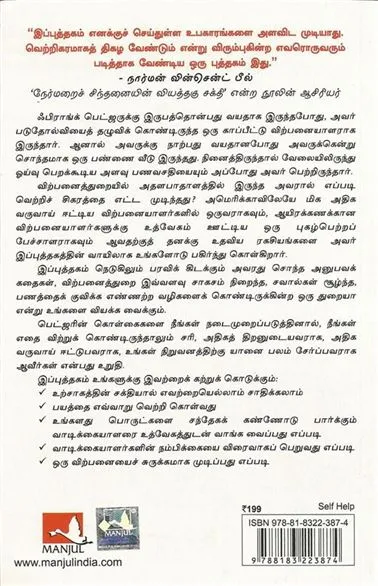 "இப்புத்தகம் எனக்குச் செய்துள்ள உபகாரங்களை அளவிட முடியாது.
வெற்றிகரமாகத் திகழ வேண்டும் என்று விரும்புகின்ற எவரொருவரும்
படித்தாக வேண்டிய ஒரு புத்தகம் இது."
- நார்மன் வின்சென்ட் பீல்
'நேர்மறைச் சிந்தனையின் வியத்தகு சக்தி' என்ற நூலின் ஆசிரியர்
ஃபிராங்க் பெட்ஜருக்கு இருபத்தொன்பது வயதாக இருந்தபோது, அவர்
படுதோல்வியைத் தழுவிக் கொண்டிருந்த ஒரு காப்பீட்டு விற்பனையாளராக
இருந்தார். ஆனால் அவருக்கு நாற்பது வயதானபோது அவருக்கென்று
சொந்தமாக ஒரு பண்ணை வீடு இருந்தது. நினைத்திருந்தால் வேலையிலிருந்து
ஓய்வு பெறக்கூடிய அளவு பணவசதியையும் அப்போது அவர் பெற்றிருந்தார்.
விற்பனைத்துறையில் அதளபாதாளத்தில் இருந்த அவரால் எப்படி
வெற்றிச் சிகரத்தை எட்ட முடிந்தது? அமெரிக்காவிலேயே மிக அதிக
வருவாய் ஈட்டிய விற்பனையாளர்களில் ஒருவராகவும், ஆயிரக்கணக்கான
விற்பனையாளர்களுக்கு உத்வேகம் ஊட்டிய ஒரு புகழ்பெற்றப்
பேச்சாளராகவும் ஆவதற்குத் தனக்கு உதவிய ரகசியங்களை அவர்
இப்புத்தகத்தின் வாயிலாக உங்களோடு பகிர்ந்து கொள்கிறார்.
இப்புத்தகம் நெடுகிலும் பரவிக் கிடக்கும் அவரது சொந்த அனுபவக்
கதைகள், விற்பனைத்துறை இவ்வளவு சாகசம் நிறைந்த, சவால்கள் சூழ்ந்த,
பணத்தைக் குவிக்க எண்ணற்ற வழிகளைக் கொண்டிருக்கின்ற ஒரு துறையா
என்று உங்களை வியக்க வைக்கும்.
பெட்ஜரின் கொள்கைகளை நீங்கள் நடைமுறைப்படுத்தினால், நீங்கள்
எதை விற்றுக் கொண்டிருந்தாலும் சரி, அதிகத் திறனுடையவராக, அதிக
வருவாய் ஈட்டுபவராக, உங்கள் நிறுவனத்திற்கு யானை பலம் சேர்ப்பவராக
ஆவீர்கள் என்பது உறுதி.
இப்புத்தகம் உங்களுக்கு இவற்றைக் கற்றுக் கொடுக்கும்:
✓ உற்சாகத்தின் சக்தியால் எவற்றையெல்லாம் சாதிக்கலாம்
✓ பயத்தை எவ்வாறு வெற்றி கொள்வது
✓ உங்களது பொருட்களை சந்தேகக் கண்ணோடு பார்க்கும்
வாடிக்கையாளரை உத்வேகத்துடன் வாங்க வைப்பது எப்படி
✓ வாடிக்கையாளர்களின் நம்பிக்கையை விரைவாகப் பெறுவது எப்படி
✓ ஒரு விற்பனையைச் சுருக்கமாக முடிப்பது எப்படி
₹199 Self Help
ISBN 978-81-8322-387-4
9 788183 223874
MANJUL
www.manjulindia.com
MANJUL